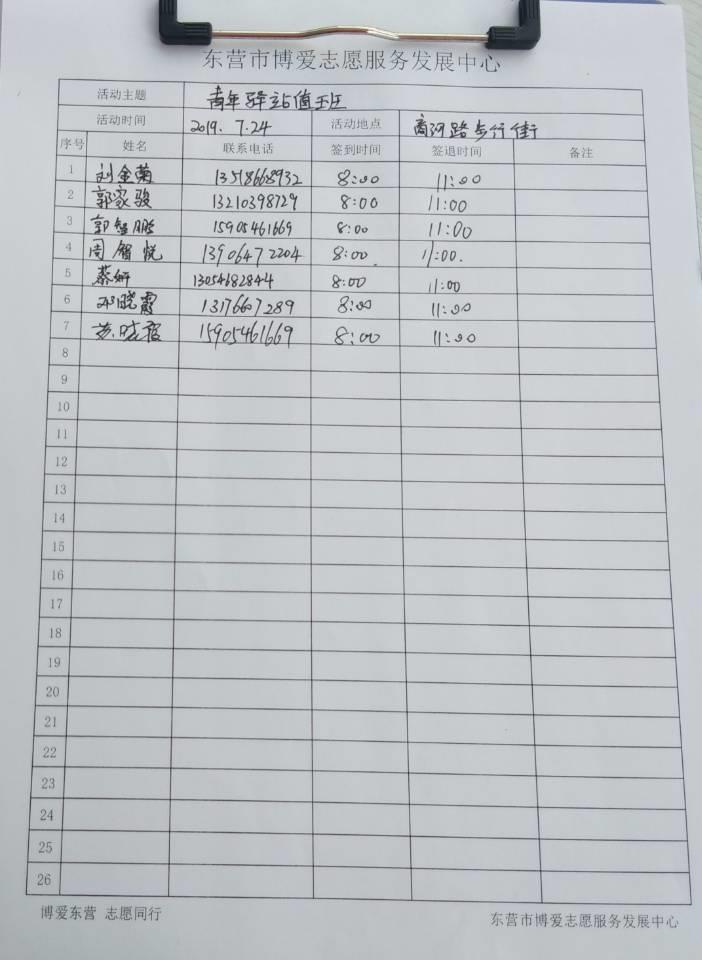 东营市博爱志愿服务发展中心
活动主题 青年驿站值班
活动时间 2019. 7.24 活动地点 商河路步行街
序号 姓名 联系电话 签到时间 签退时间 备注
1 刘金菊 13518668932 8:00 11:00
2 郭家骏 13210398729 8:00 11:00
3 郭智鹏 15905461669 8:00 11:00
4 周智悦 13906472204 8:00 11:00.
5 蔡妍 13054682844 8:00 11:00
6 邓晓霞 13176607289 8:00 11:00
7 苏晓 15905461669 8:00 11:00
8
9
10
11
12
13
14
15
16
17
18
19
20
21
22
23
24
25
26
博爱东营 志愿同行 东营市博爱志愿服务发展中心